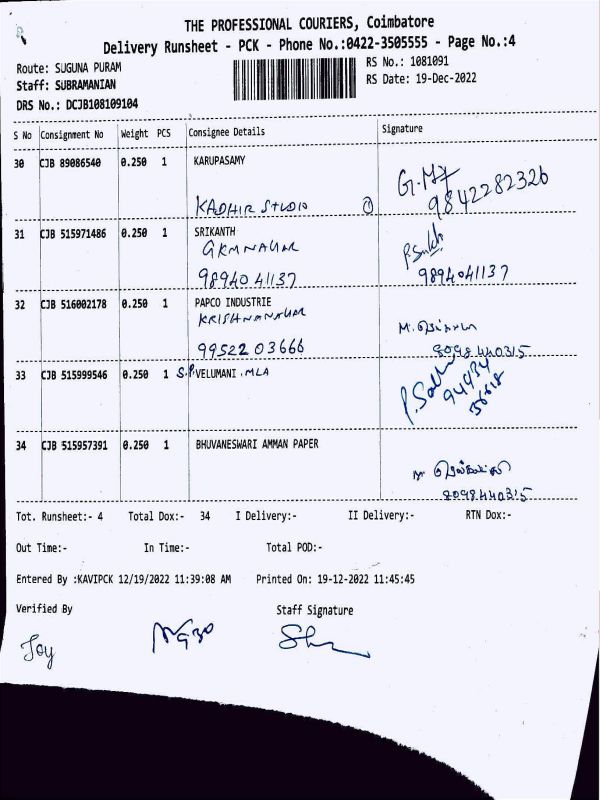 THE PROFESSIONAL COURIERS, Coimbatore
Delivery Runsheet - PCK - Phone No.:0422-3505555 - Page No.:4
Route: SUGUNA PURAM
RS No.: 1081091
Staff: SUBRAMANIAN
RS Date: 19-Dec-2022
DRS No.: DCJB108109104
S No Consignment No Weight PCS Consignee Details Signature
30 CJB 89086540 0.250 1 KARUPASAMY
KADHIR STUDIO
9842282326
31 CJB 515971486 0.250 1 SRIKANTH
GKMNAGAR
98940 41137 9894041137
32 CJB 516002178 0.250 1 PAPCO INDUSTRIE
KRISHNANAGAR
99522 03666 8098440315
33 CJB 515999546 0.250 1 S.P.VELUMANI.MLA
34 CJB 515957391 0.250 1 BHUVANESWARI AMMAN PAPER
8098440315
Tot. Runsheet:- 4 Total Dox:- 34 I Delivery:- II Delivery:- RTN Dox:-
Out Time:- In Time:- Total POD:-
Entered By :KAVIPCK 12/19/2022 11:39:08 AM Printed On: 19-12-2022 11:45:45
Verified By Staff Signature
Joy